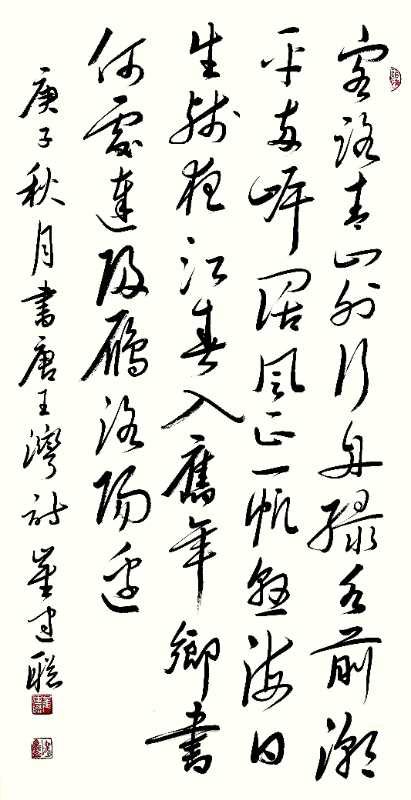 客路青山外行舟綠水前潮
平兩岸闊風正一帆懸海日
生殘夜江春入舊年鄉書
何處達歸雁洛陽邊
庚子秋月書唐王灣詩崔建